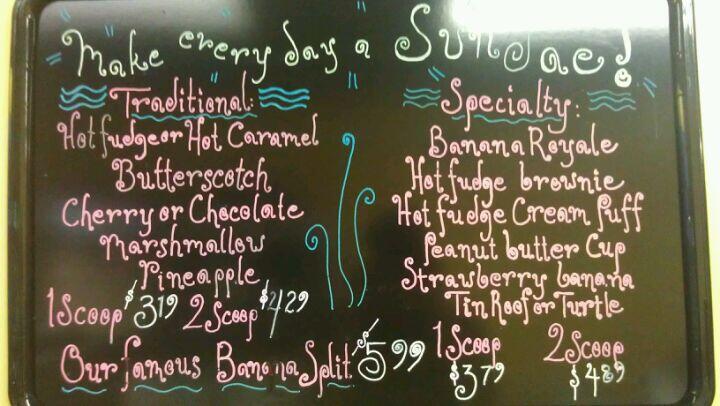 Make every day a Sundae!
Traditional:
Hot fudge or Hot Caramel
Butterscotch
Cherry or Chocolate
Marshmallow
Pineapple
1 Scoop $3.19 2 Scoop $4.29
Specialty:
Banana Royale
Hot fudge brownie
Hot fudge Cream Puff
Peanut butter Cup
Strawberry banana
Tin Roof or Turtle
1 Scoop 2 Scoop
$3.79 $4.89
Our famous Banana Split $5.99